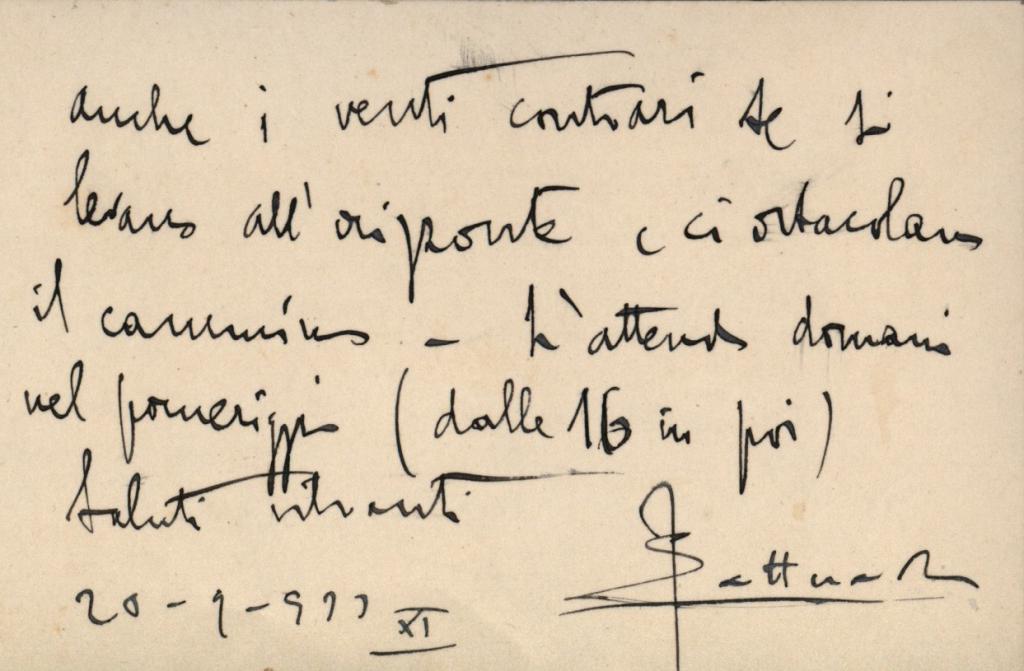 anche i venti contrari se si
levano all'orizzonte e ci ostacolano
il cammino – L'attendo domani
nel pomeriggio (dalle 16 in poi)
Saluti vibranti
20-9-933 XI